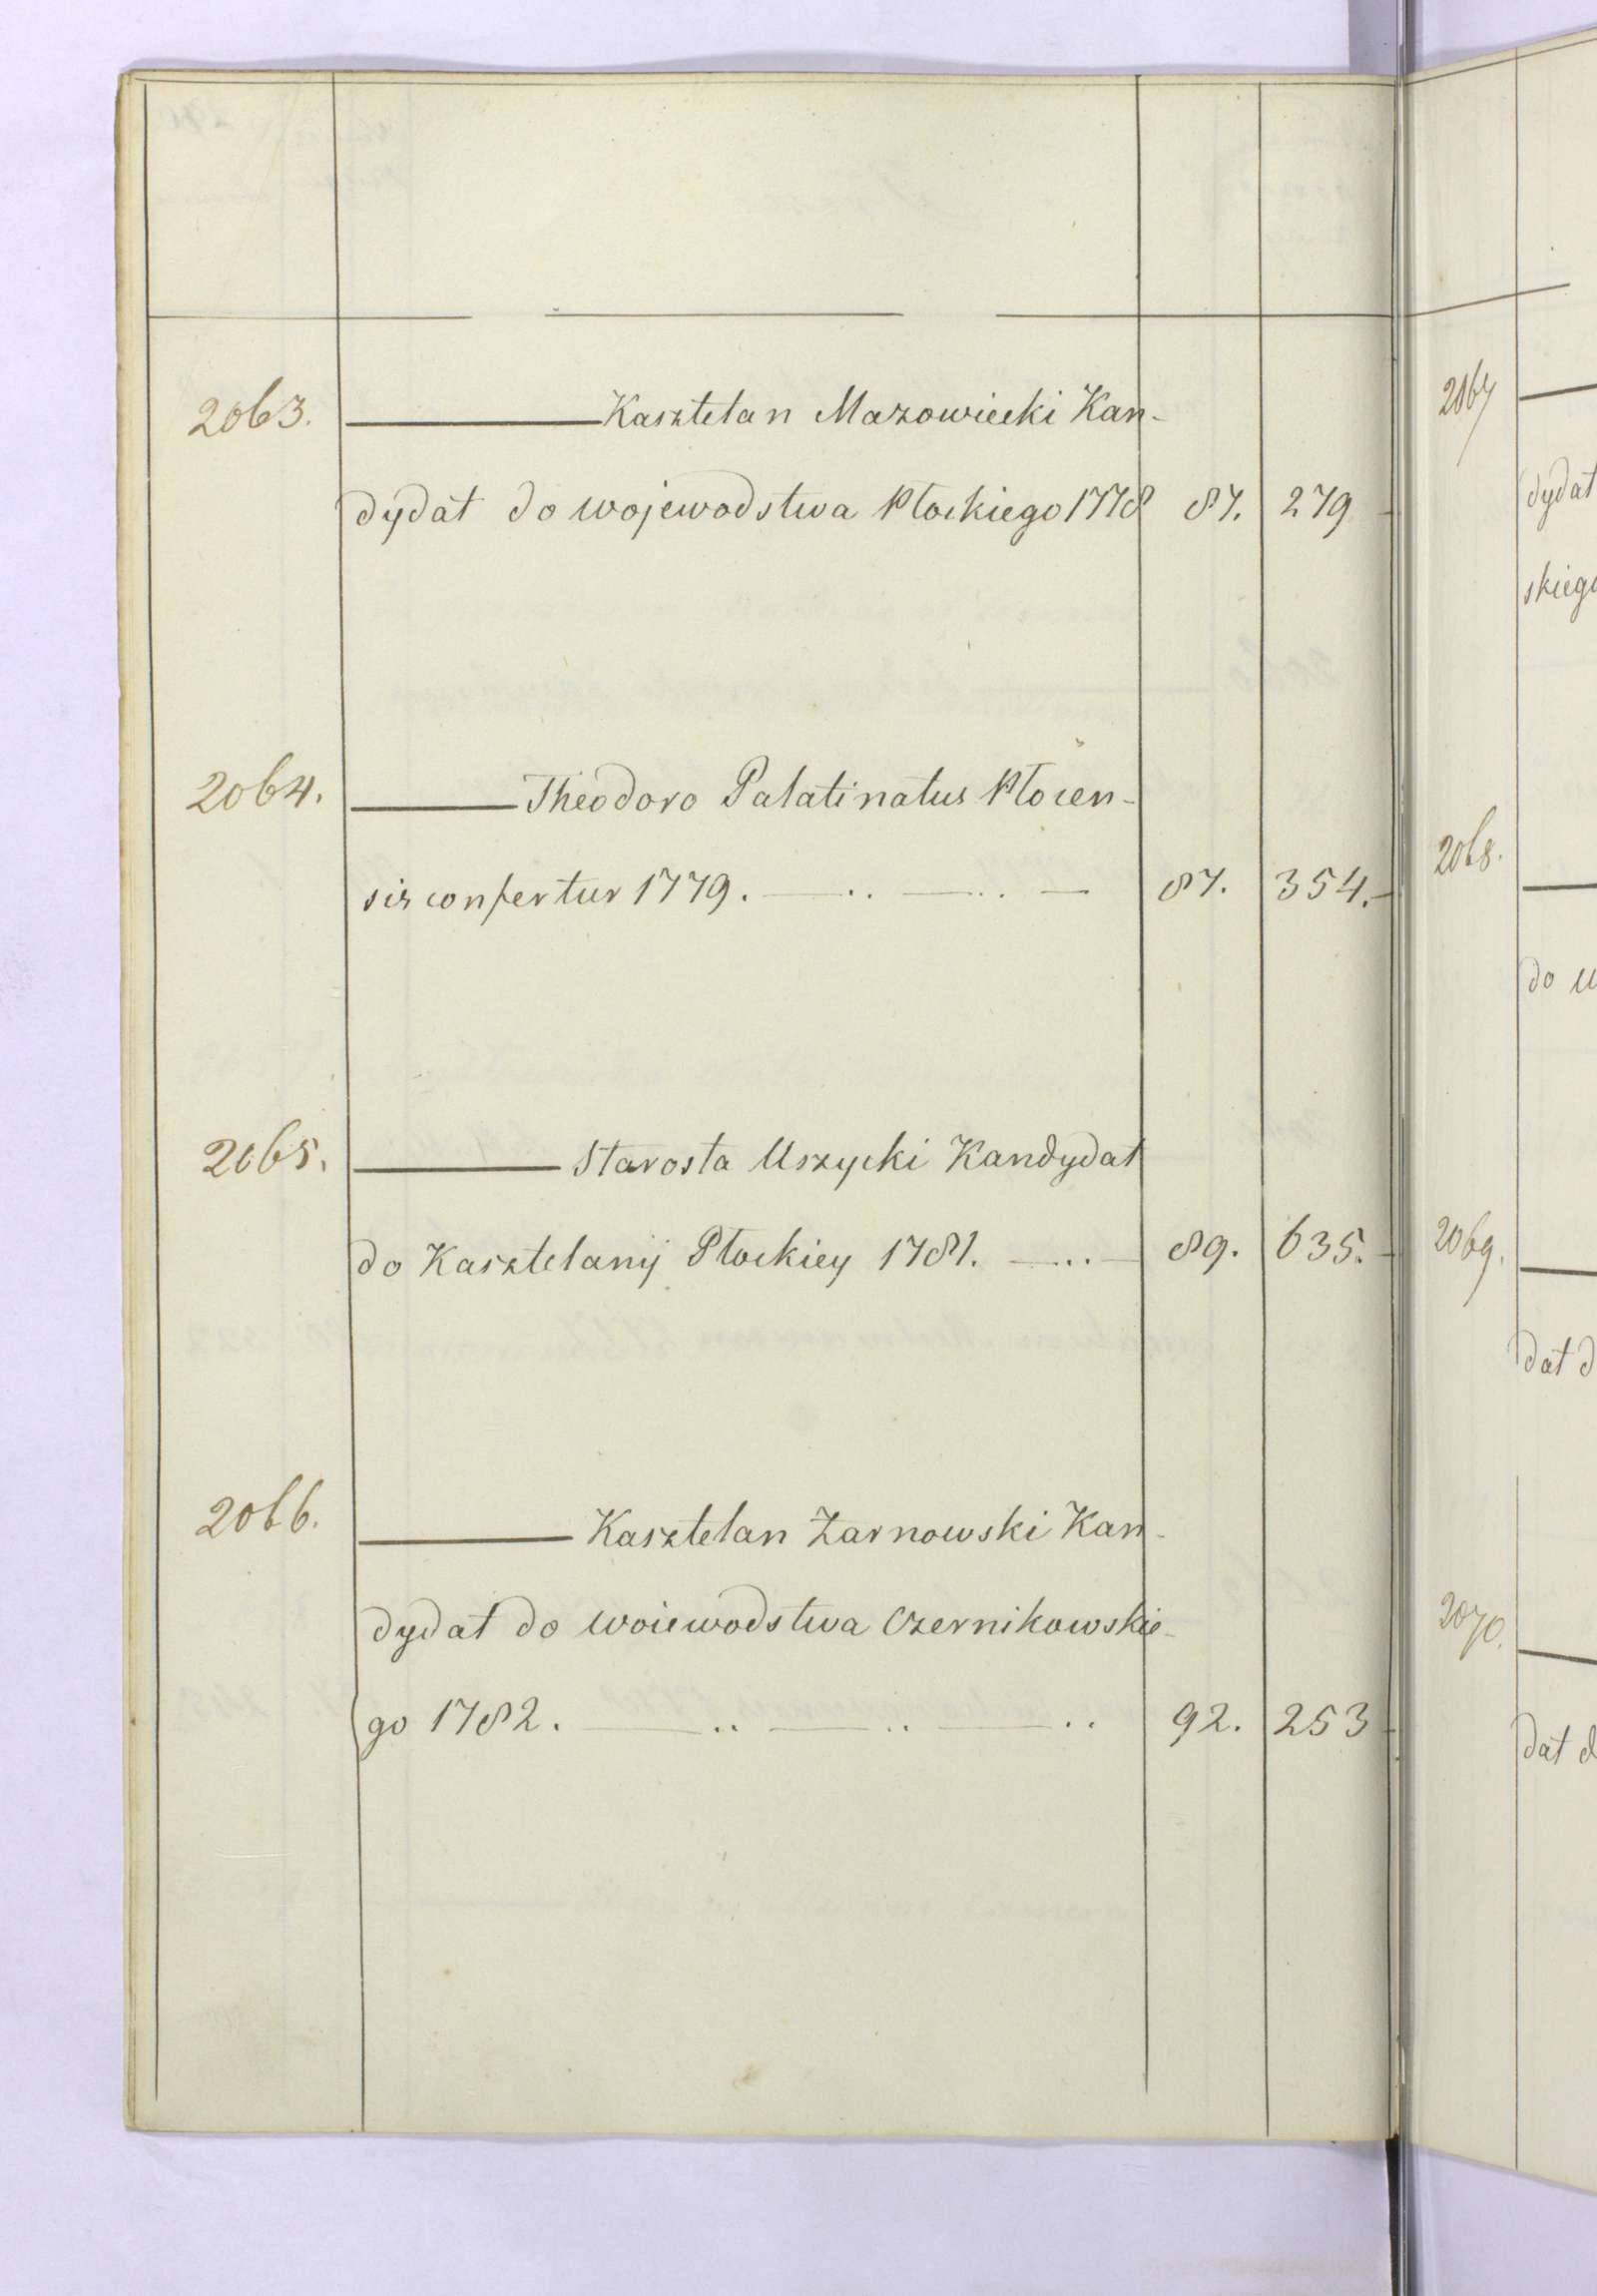 2063. ——— Kasztelan Mazowiecki Kan-
dydat do wojewodstwa Płockiego 1778 87. 279
2064. ——— Theodoro Palatinatus Płocen-
sis confertur 1779. —..—..— 87. 354.
2065. ——— Starosta Uszycki Kandydat
do Kasztelanij Płockiey 1781. —..— 89. 635.
2066. ——— Kasztelan Żarnowski Kan-
dydat do woiewodstwa Czernikowskie-
go 1782. —..—..—.. 92. 253
2067
dydat
skieg
2068.
do
2069.
dat d
2070.
dat d